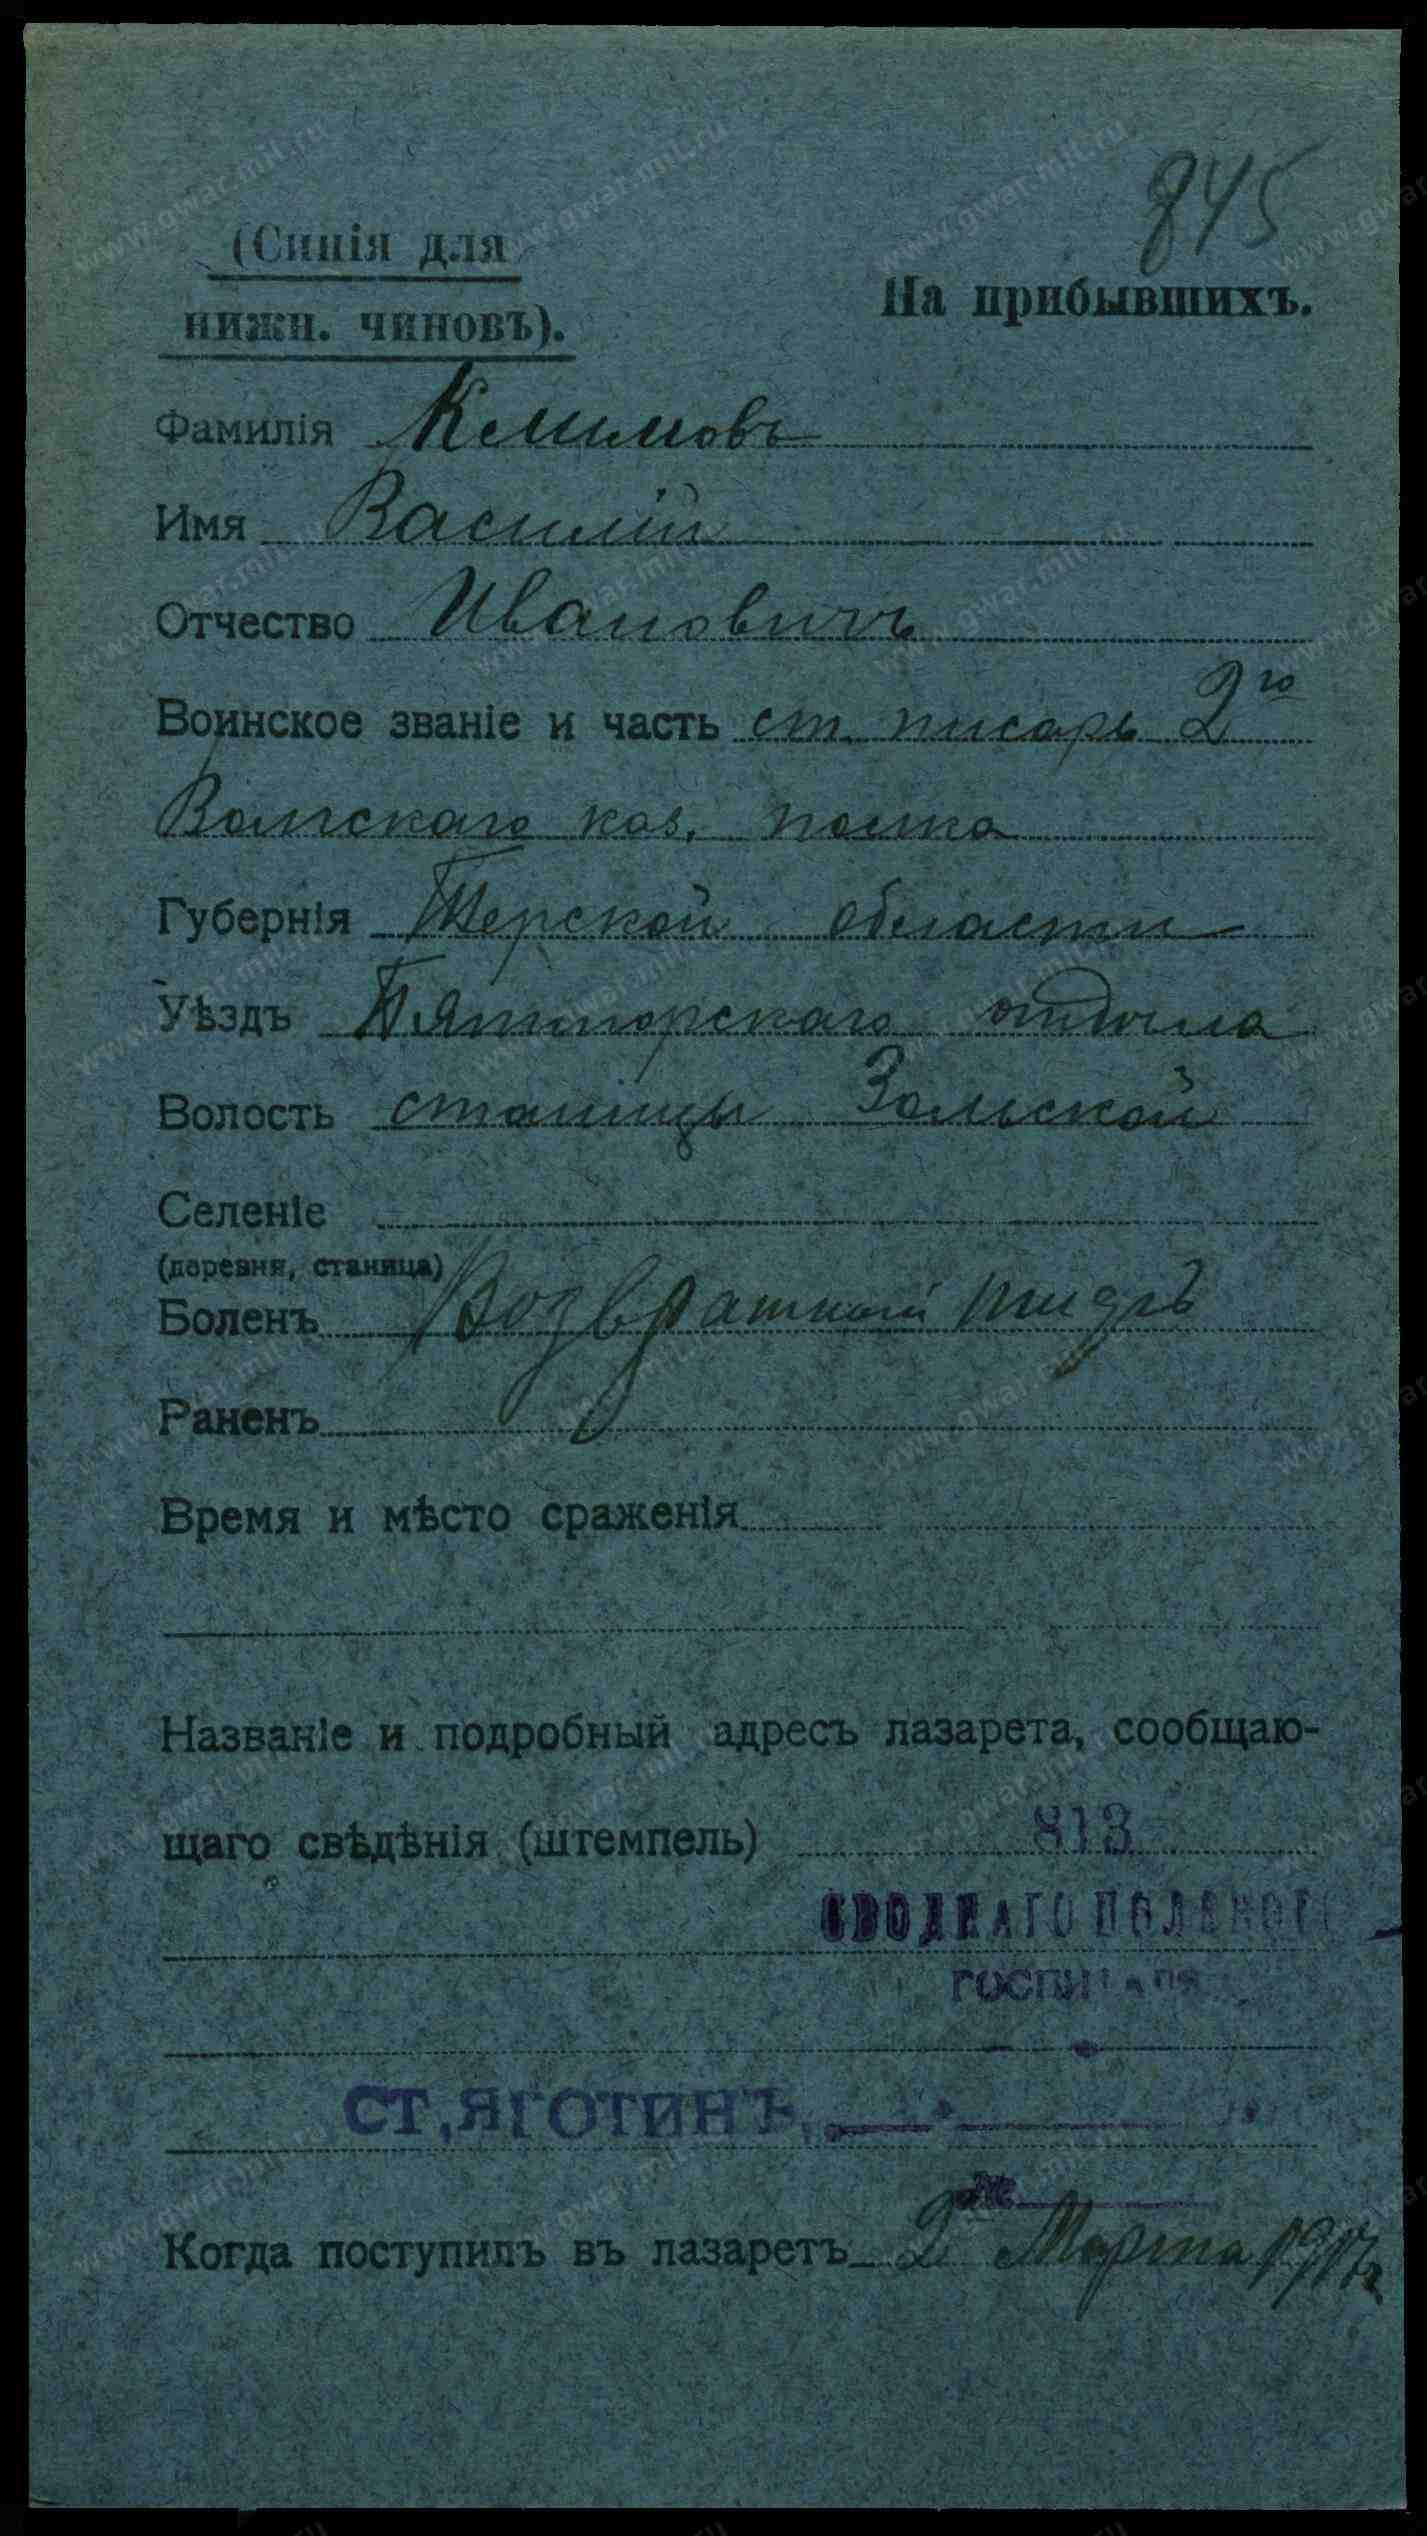 845
(Синія для
нижн. чиновъ).
На прибывшихъ.
Фамилія Климовъ
Имя Василій
Отчество Ивановичъ
Воинское званіе и часть ст. писарь 2го
Волгскаго каз. полка
Губернія Терской области
Уѣздъ Пятигорскаго отдѣла
Волость станицы Зольской
Селеніе
(деревня, станица)
Боленъ Возвратный тифъ
Раненъ
Время и мѣсто сраженія
Названіе и подробный адресъ лазарета, сообщаю-
щаго свѣдѣнія (штемпель) 813
СВОДНАГО ПОЛЕВОГО
ГОСПИТАЛЯ
СТ, ЯГОТИНЪ,
Когда поступилъ въ лазаретъ 2 Марта 1917 г